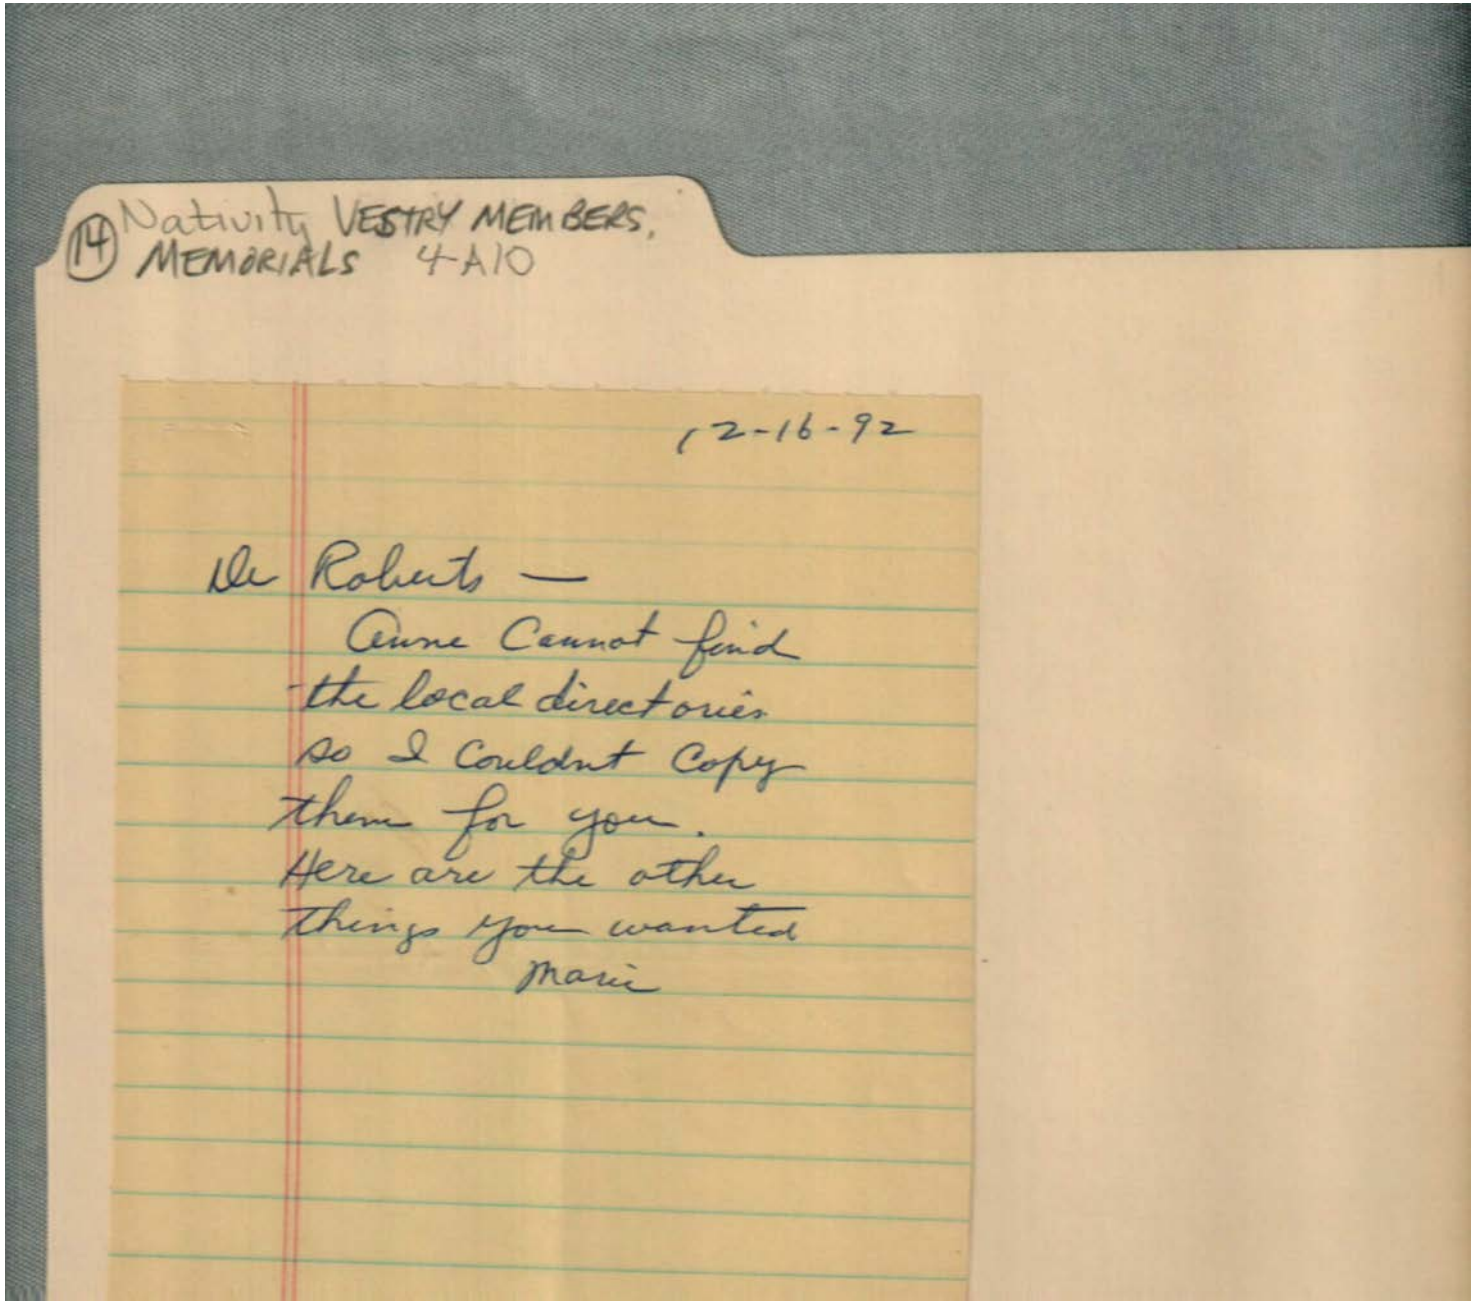 14 Nativity VESTRY MEMBERS,
MEMORIALS 4-A10
12-16-92
Dr Roberts —
Anne Cannot find
the local directories
so I Couldnt Copy
them for you.
Here are the other
things you wanted
Marie